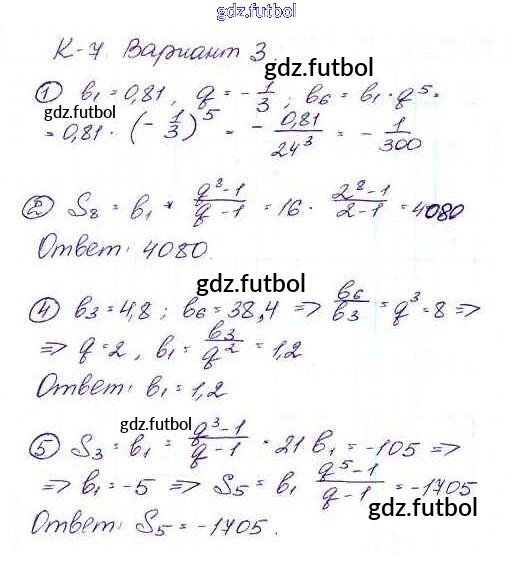 gdz.futbol
К-7. Вариант 3.
gdz.futbol
① b₁ = 0,81, q = -1/3; b₆ = b₁ · q⁵ =
gdz.futbol
= 0,81 · (-1/3)⁵ = - 0,81/24³ = - 1/300
② S₈ = b₁ * q⁸-1/q-1 = 16 · 2⁸-1/2-1 = 4080
Ответ: 4080.
gdz.futbol
④ b₃ = 4,8; b₆ = 38,4 => b₆/b₃ = q³ = 8 =>
=> q = 2, b₁ = b₃/q² = 1,2
Ответ: b₁ = 1,2
gdz.futbol
⑤ S₃ = b₁ = q³-1/q-1 = 21 b₁ = -105 =>
=> b₁ = -5 => S₅ = b₁ q⁵-1/q-1 = -1705
gdz.futbol
Ответ: S₅ = -1705.